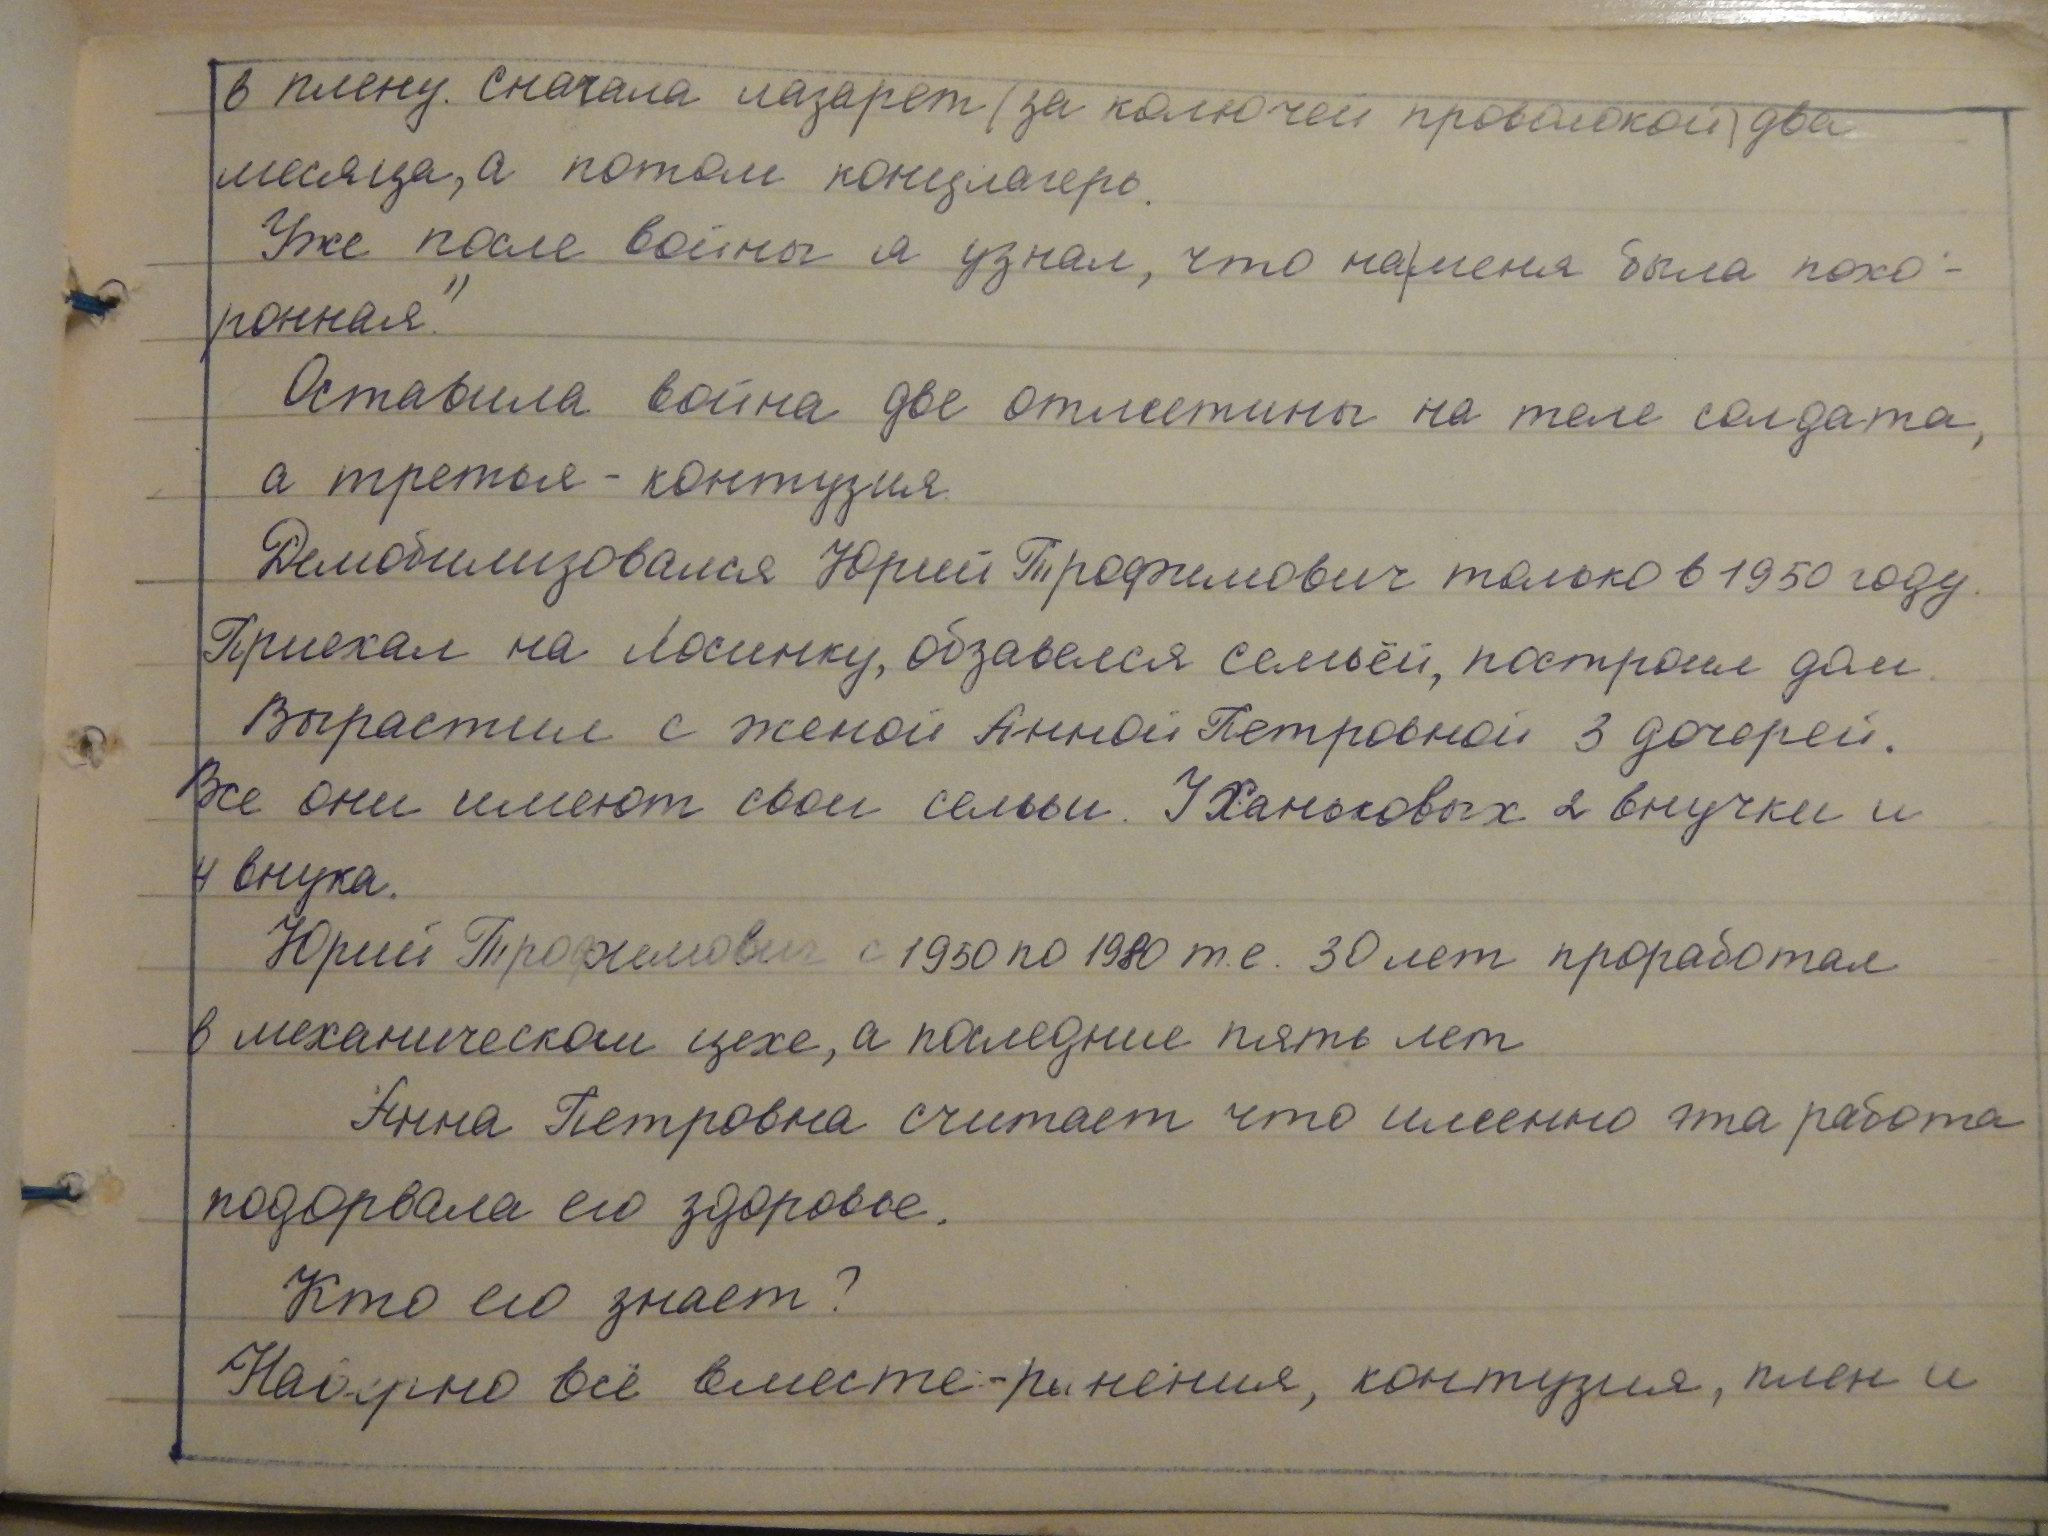 в плену. Сначала лазарет (за колючей проволокой) два
месяца, а потом концлагерь.
Уже после войны я узнал, что на меня была похо-
ронная."
Оставила война две отметины на теле солдата,
а третья - контузия.
Демобилизовался Юрий Трофимович только в 1950 году.
Приехал на Лосинку, обзавелся семьёй, построил дом.
Вырастил с женой Анной Петровной 3 дочерей.
Все они имеют свои семьи. У Ханьковых 2 внучки и
4 внука.
Юрий Трофимович с 1950 по 1980 т.е. 30 лет проработал
в механическом цехе, а последние пять лет
Анна Петровна считает что именно эта работа
подорвала его здоровье.
Кто его знает?
Наверно всё вместе - ранения, контузия, плен и